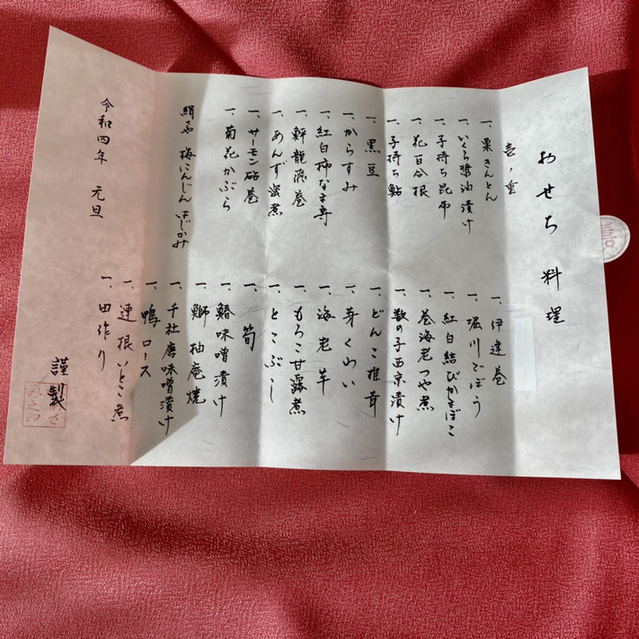 おせち料理
壱ノ重
一、栗きんとん
一、いくら醤油漬け
一、子持ち昆布
一、花百合根
一、子持ち鮎
一、黒豆
一、からすみ
一、紅白柿なます
一、軒龍飛巻
一、あんず蜜煮
一、サーモン砧巻
一、菊花かぶら
絹さや 梅にんじん はじかみ
一、伊達巻
一、堀川ごぼう
一、紅白結びかまぼこ
一、巻海老つや煮
一、数の子西京漬け
一、どんこ椎茸
一、芽くわい
一、海老芋
一、もろこ甘露煮
一、とこぶし
一、筍
一、鰆味噌漬け
一、鰤柚庵焼
一、千社唐味噌漬け
一、鴨ロース
一、蓮根いとこ煮
一、田作り
令和四年 元旦
謹製